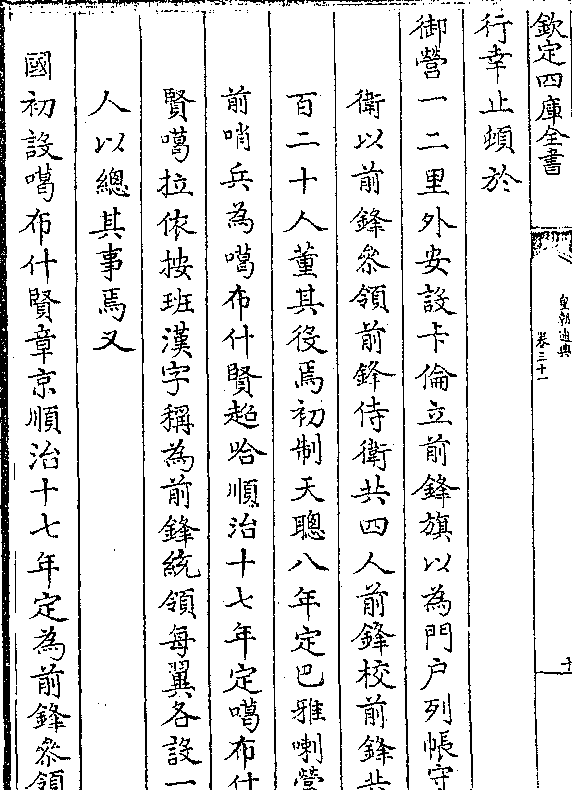 欽定四庫全書
皇朝通典
卷三十一
行幸止頓於
御營一二里外安設卡倫立前鋒旗以為門户列帳守
衛以前鋒叅領前鋒侍衛共四人前鋒校前鋒共
百二十人董其役焉初制天聰八年定巴雅喇營
前哨兵為噶布什賢超哈順治十七年定噶布什
賢噶拉依按班漢字稱為前鋒統領每翼各設一
人以總其事焉又
國初設噶布什賢章京順治十七年定為前鋒叅領